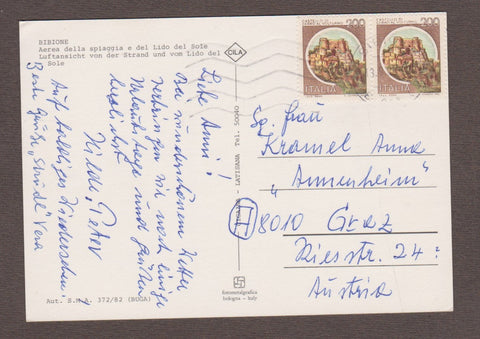 BIBIONE
Aerea della spiaggia e del Lido del Sole
Luftansicht von der Strand und vom Lido del
Sole
CILA
200
200
ITALIA
ITALIA
Liebe Anni!
Bei wunderschönem Wetter
verbringen wir noch einige
Urlaubstage und grüßen
herzlichst
Hilde, Peter
Auf baldiges Wiedersehen!
Vera
Sp. Frau
Kramel Anna
„Annenheim"
8010 Graz
Riesstr. 24
Austria
LATISANA Tel. 50040
fotometalgrafica
bologna - italy
Aut. S.M.A. 372/82 (BUGA)